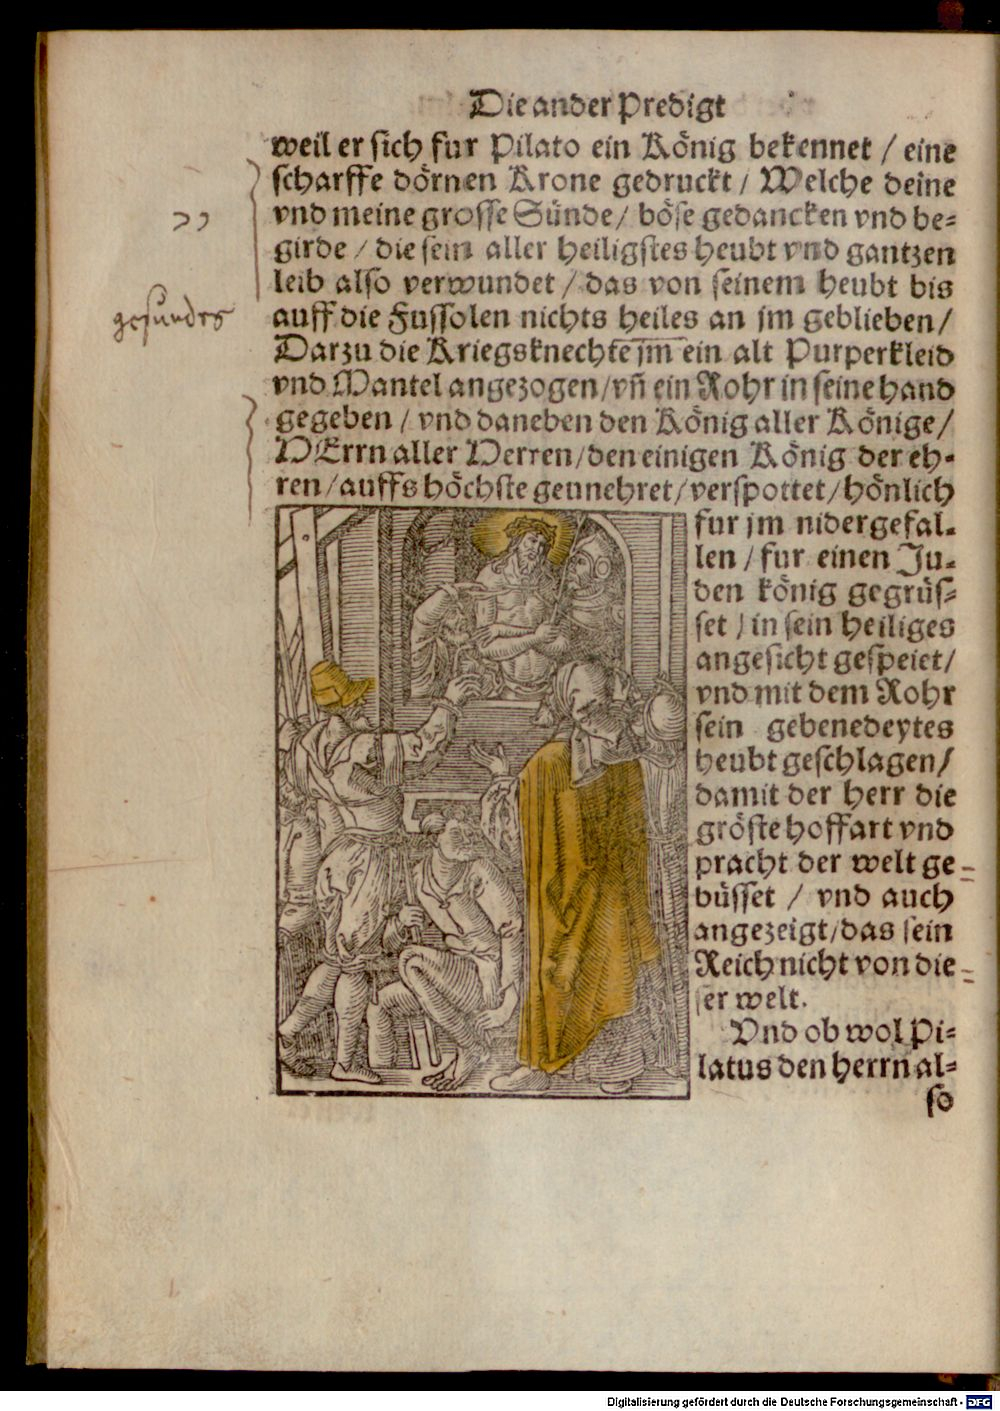 Die ander Predigt
weil er sich fur Pilato ein König bekennet / eine
scharffe dörnen Krone gedruckt / Welche deine
vnd meine grosse Sünde / böse gedancken vnd be⸗
girde / die sein aller heiligstes heubt vnd gantzen
leib also verwundet / das von seinem heubt bis
gesundes
auff die Fussolen nichts heiles an jm geblieben /
Darzu die Kriegsknechte jm ein alt Purperkleid
vnd Mantel angezogen / vñ ein Rohr in seine hand
gegeben / vnd daneben den König aller Könige /
HErrn aller Herren / den einigen König der eh⸗
ren / auffs höchste geunehret / verspottet / hönlich
fur jm nidergefal⸗
len / fur einen Ju⸗
den könig gegrüs⸗
set / in sein heiliges
angesicht gespeiet /
vnd mit dem Rohr
sein gebenedeytes
heubt geschlagen /
damit der herr die
gröste hoffart vnd
pracht der welt ge⸗
büsset / vnd auch
angezeigt / das sein
Reich nicht von die⸗
ser welt.
Vnd ob wol Pi⸗
latus den herrn al⸗
so
Digitalisierung gefördert durch die Deutsche Forschungsgemeinschaft - DFG